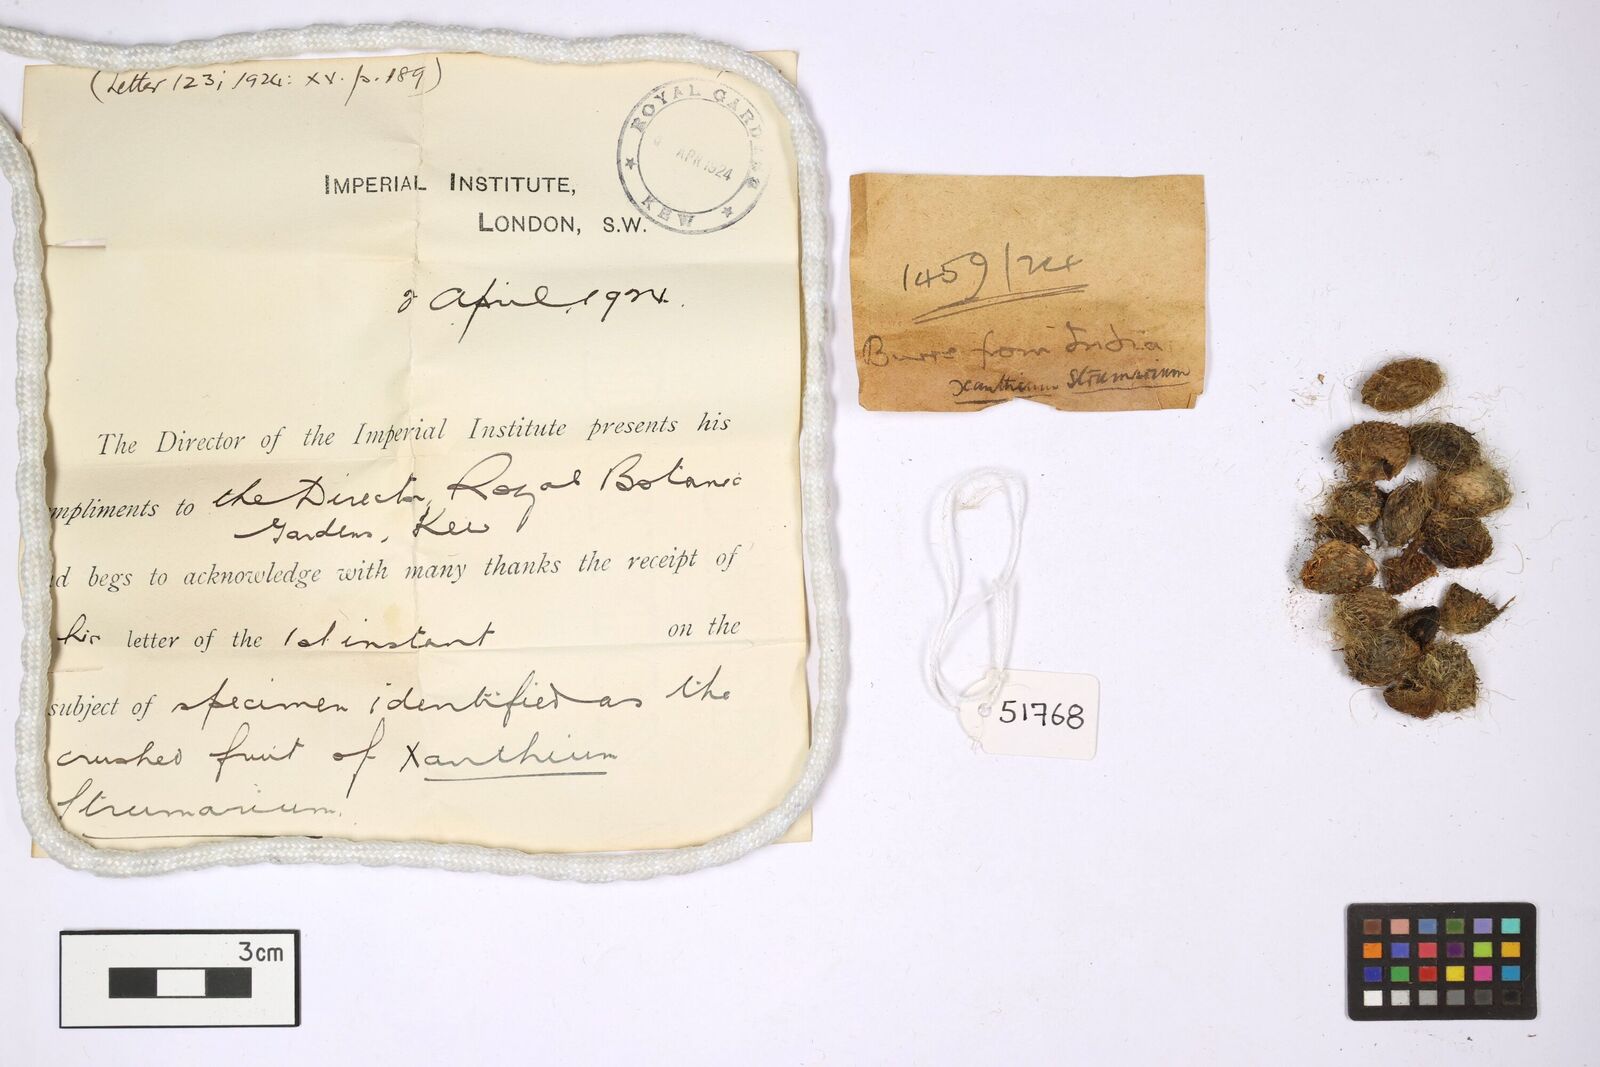 (Letter 123; 1924: XV. p. 189)
ROYAL GARDENS
APR 1924
KEW
IMPERIAL INSTITUTE,
LONDON, S.W.
April, 1924.
The Director of the Imperial Institute presents his
mpliments to the Director, Royal Botanic
Gardens, Kew
d begs to acknowledge with many thanks the receipt of
his letter of the 1st instant on the
subject of specimen identified as the
crushed fruit of Xanthium
Strumarium.
1459/24
Burrs from India
Xanthium Strumarium
51768
3cm